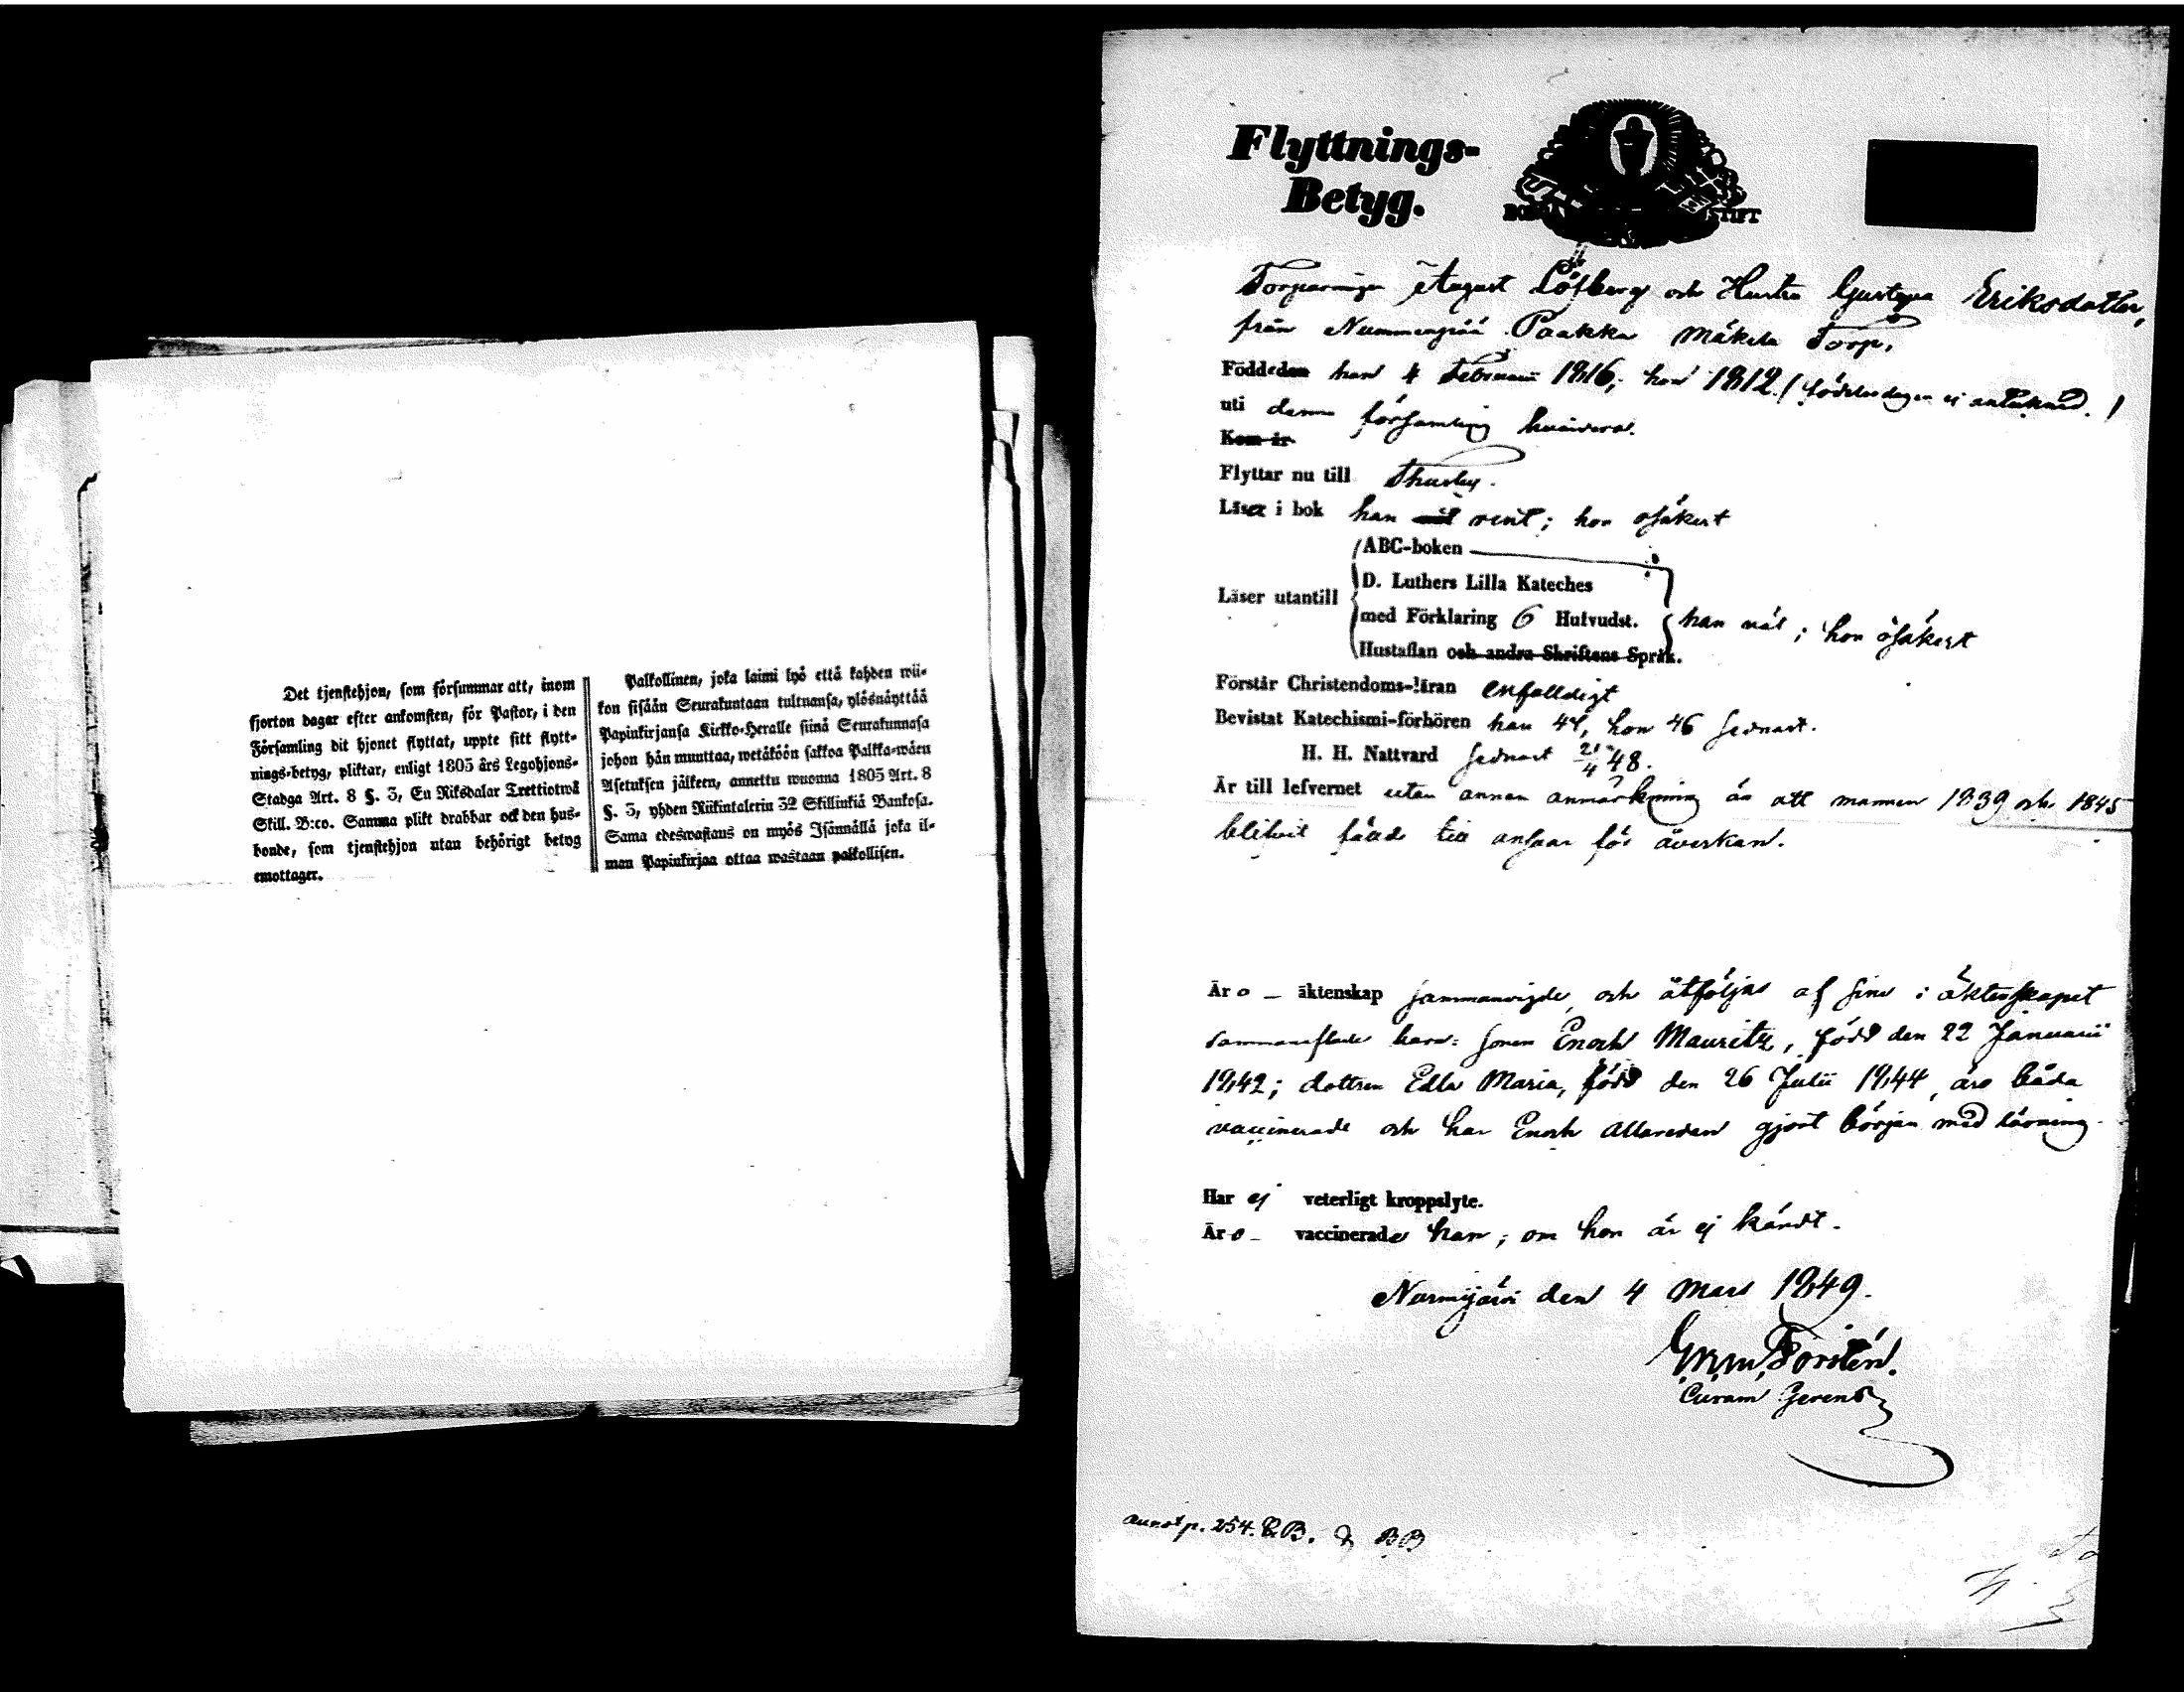 Det tjenstehjon, som försummar att, inom
fjorton dagar efter ankomsten, för Pastor, i den
Församling dit hjonet flyttat, uppte sitt flytt-
nings-betyg, pliktar, enligt 1805 års Legohjons-
Stadga Art. 8 §. 3, En Riksdalar Trettiotwå
Skill. B:co. Samma plikt drabbar ock den hus-
bonde, som tjenstehjon utan behörigt betyg
emottager.
Palkollinen, joka laimi lyö että kahden wii-
kon sisään Seurakuntaan tultuansa, ylösnäyttää
Papinkirjansa Kirkko-Heralle siinä Seurakunnasa
johon hän muuttaa, wetäköön sakkoa Palkka-wäen
Asetuksen jälkeen, annettu wuonna 1805 Art. 8
§. 3, yhden Riikintalerin 32 Skillinkiä Bankosa.
Sama edeswastaus on myös Isännällä joka il-
man Papinkirjaa ottaa wastaan palkollisen.
Flyttnings-
Betyg.
STIFT
August Löfberg och Hustru Gustava Eriksdotter,
från Nummenpää Paakka Mäkelä Torp.
Födde den han 4 Februarii 1816; hon 1812. (födelsedagen ej antecknad.)
uti denna församling
Kom år
Flyttar nu till Thusby.
Läser i bok han rent; hon osäkert
ABC-boken
D. Luthers Lilla Kateches
Läser utantill
med Förklaring 6 Hufvudst. han nöl; hon osäkert
Hustaflan och andra Skriftens Språk.
Förstår Christendoms-läran enfalldigt
Bevistat Katechismi-förhören han 47, hon 46 sednast.
H. H. Nattvard sednast 21/4 48.
Är till lefvernet utan annan anmärkning än att mannen 1839 och 1845
blifvit fälld till ansvar för åverkan.
Äro äktenskap sammanvigde, och åtföljas af sine i äktenskapet
sammanaflade barn: sonen Enoch Mauritz, född den 22 Januarii
1842; dottren Edla Maria, född den 26 Julii 1844, äro båda
vaccinerade och har Enoch allaredan gjort början med läsning.
Har ej veterligt kroppslyte.
Äro vaccinerade han; om hon är ej kändt.
Nurmijärvi den 4 Mars 1849.
Forstén.
Curam Gerens
p. 254. C.B. & BB